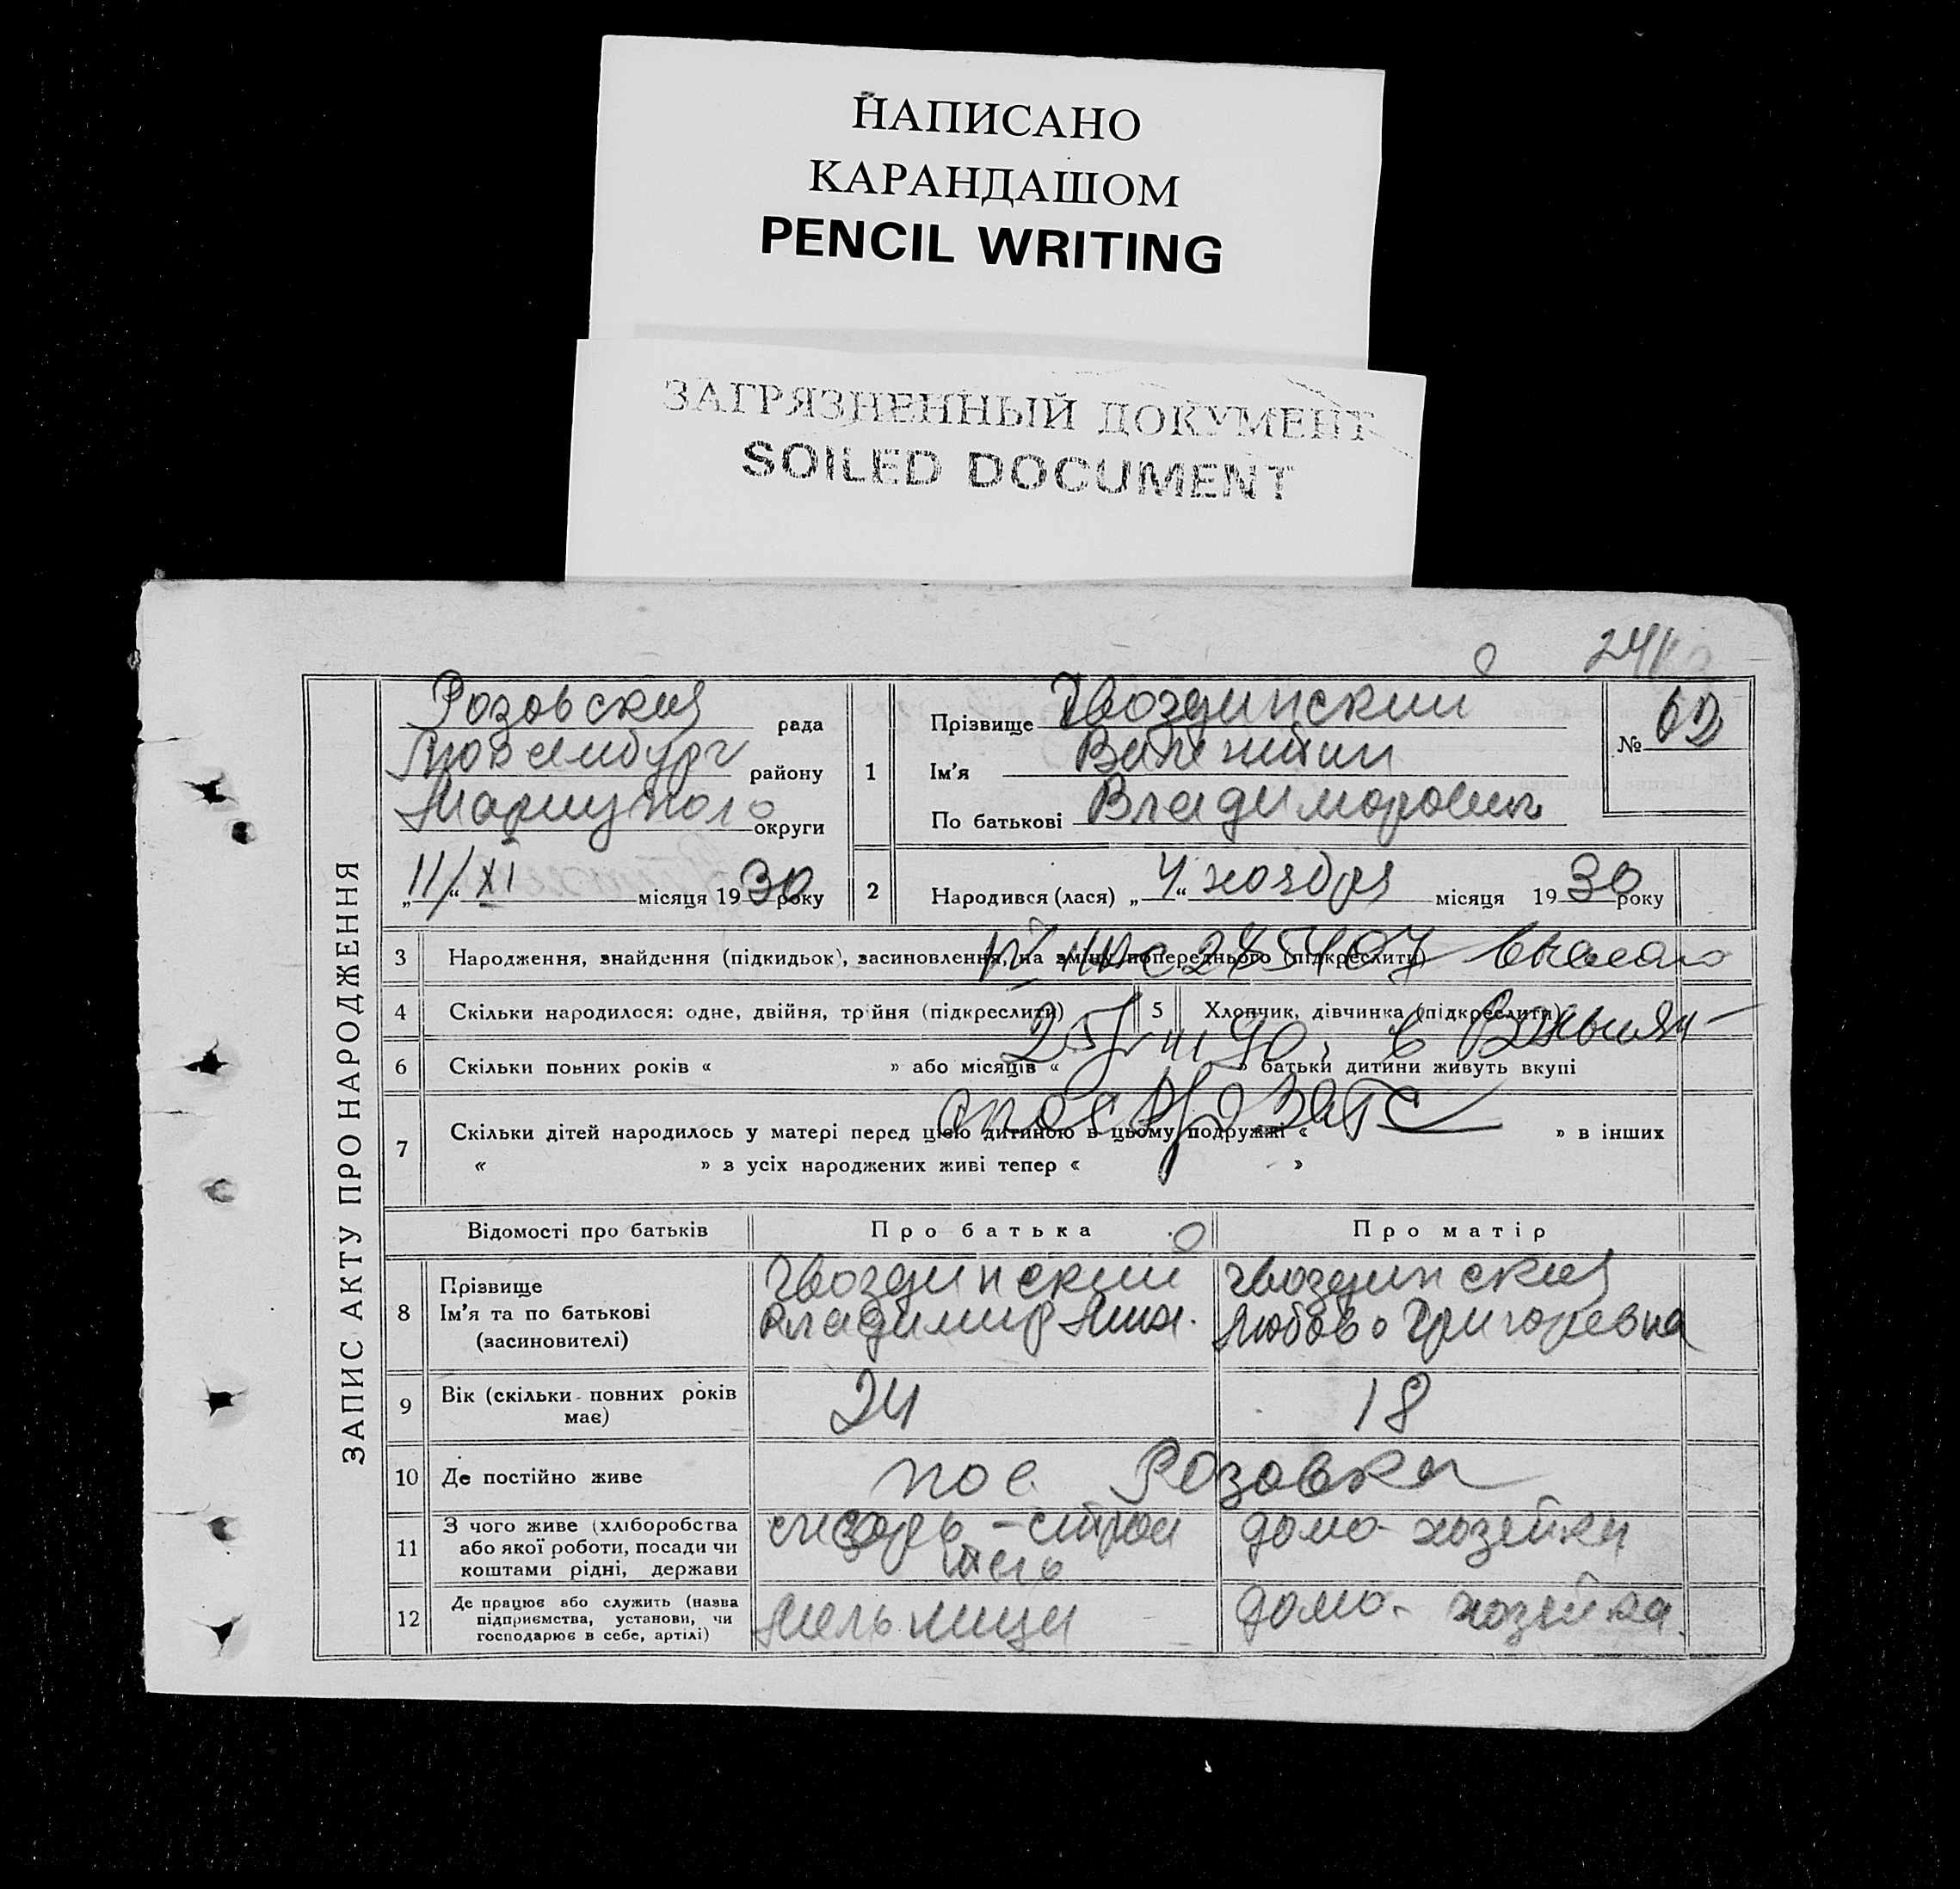 НАПИСАНО
КАРАНДАШОМ
PENCIL WRITING
ЗАГРЯЗНЕННЫЙ ДОКУМЕНТ
SOILED DOCUMENT
ЗАПИС АКТУ ПРО НАРОДЖЕННЯ
Розовская рада
Люксембург району
Мариупол округи
„11/“ XI місяця 1930 року
1 Прізвище Гвоздинский
Ім'я Валентин
По батькові Владимирович
№ 60
2 Народився (лася) „4“ ноября місяця 1930 року
3 Народження, знайдення (підкидьок), засиновлення, на зміну попереднього (підкреслити)
4 Скільки народилося: одне, двійня, трійня (підкреслити) 5 Хлопчик, дівчинка (підкреслити)
6 Скільки повних років « » або місяців « » батьки дитини живуть вкупі
7 Скільки дітей народилось у матері перед цією дитиною в цьому подружжі « » в інших
« » з усіх народжених живі тепер « »
Відомості про батьків Про батька Про матір
8 Прізвище Гвоздинский Гвоздинская
Ім'я та по батькові Владимир Мих. Любовь Григоревна
(засиновителі)
9 Вік (скільки повних років має) 24 18
10 Де постійно живе пос Розовка
11 З чого живе (хліборобства або якої роботи, посади чи коштами рідні, держави слесарь-строитель домо-хозяйка
12 Де працює або служить (назва підприємства, установи, чи господарює в себе, артілі) Мельници домо-хозяйка